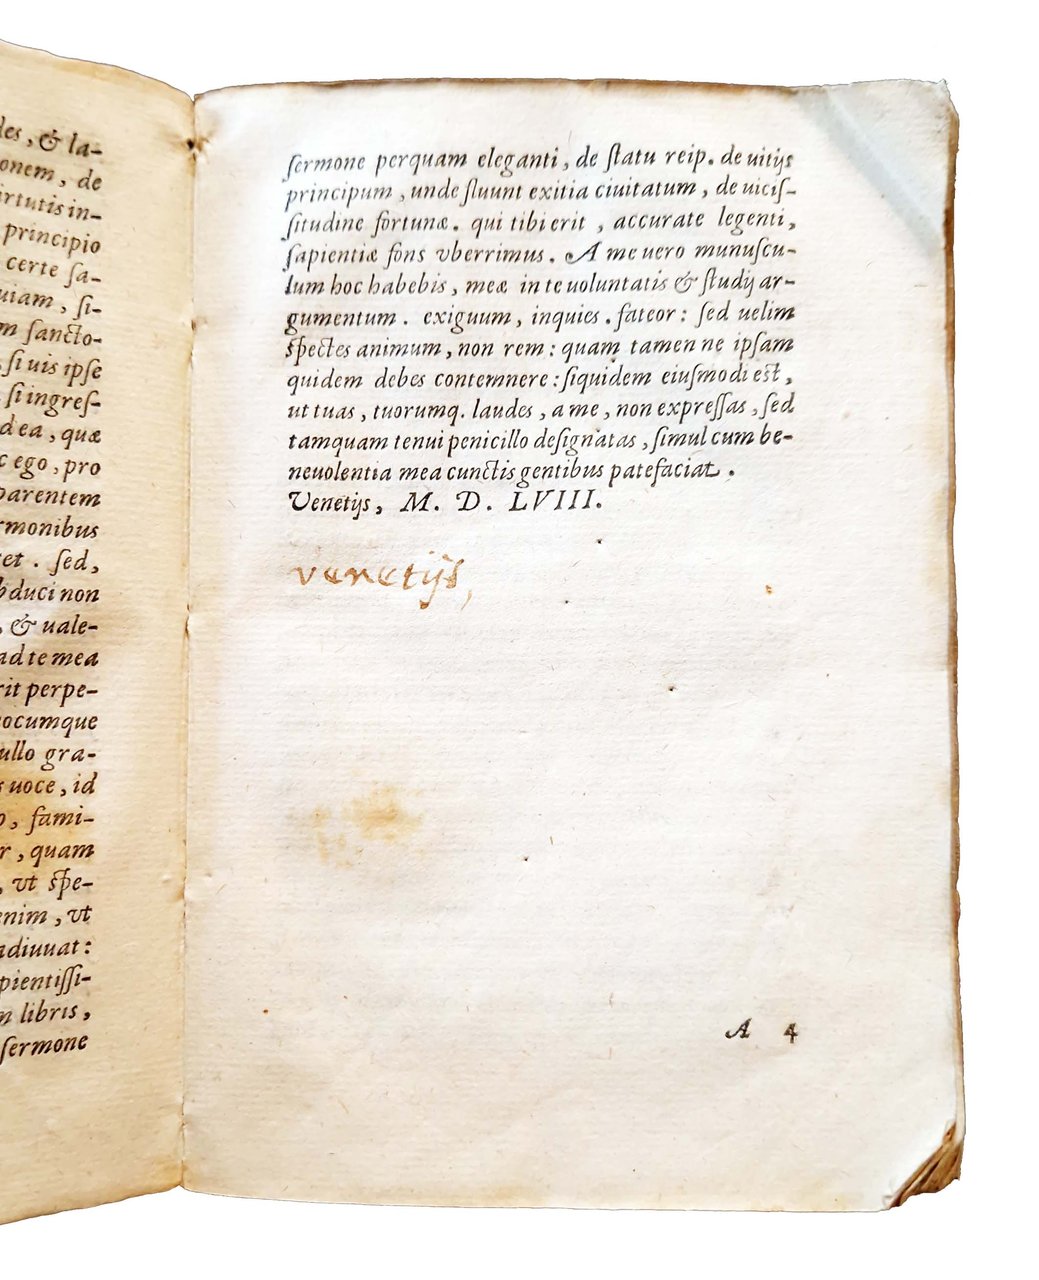 les, & la-
onem, de
irtutis in-
principio
certe ſa-
uiam, ſi-
m ſancto-
ſi uis ipſe
ſi ingreſ-
d ea, quæ
c ego, pro
parentem
rmonibus
et. ſed,
bduci non
, & uale-
ad te mea
rit perpe-
ocumque
ullo gra-
s uoce, id
o, fami-
r, quam
, vt ſpe-
enim, vt
adiuuat:
pientiſſi-
n libris,
ſermone
ſermone perquam eleganti, de ſtatu reip. de uitijs
principum, unde fluunt exitia ciuitatum, de uiciſ-
ſitudine fortunæ. qui tibi erit, accurate legenti,
ſapientiæ fons vberrimus. A me uero munuſcu-
lum hoc habebis, meæ in te uoluntatis & ſtudij ar-
gumentum. exiguum, inquies. fateor: ſed uelim
ſpectes animum, non rem: quam tamen ne ipſam
quidem debes contemnere: ſiquidem eiuſmodi eſt,
ut tuas, tuorumq. laudes, a me, non expreſſas, ſed
tamquam tenui penicillo deſignatas, ſimul cum be-
neuolentia mea cunctis gentibus patefaciat.
Venetijs, M. D. LVIII.
venetijs,
A 4